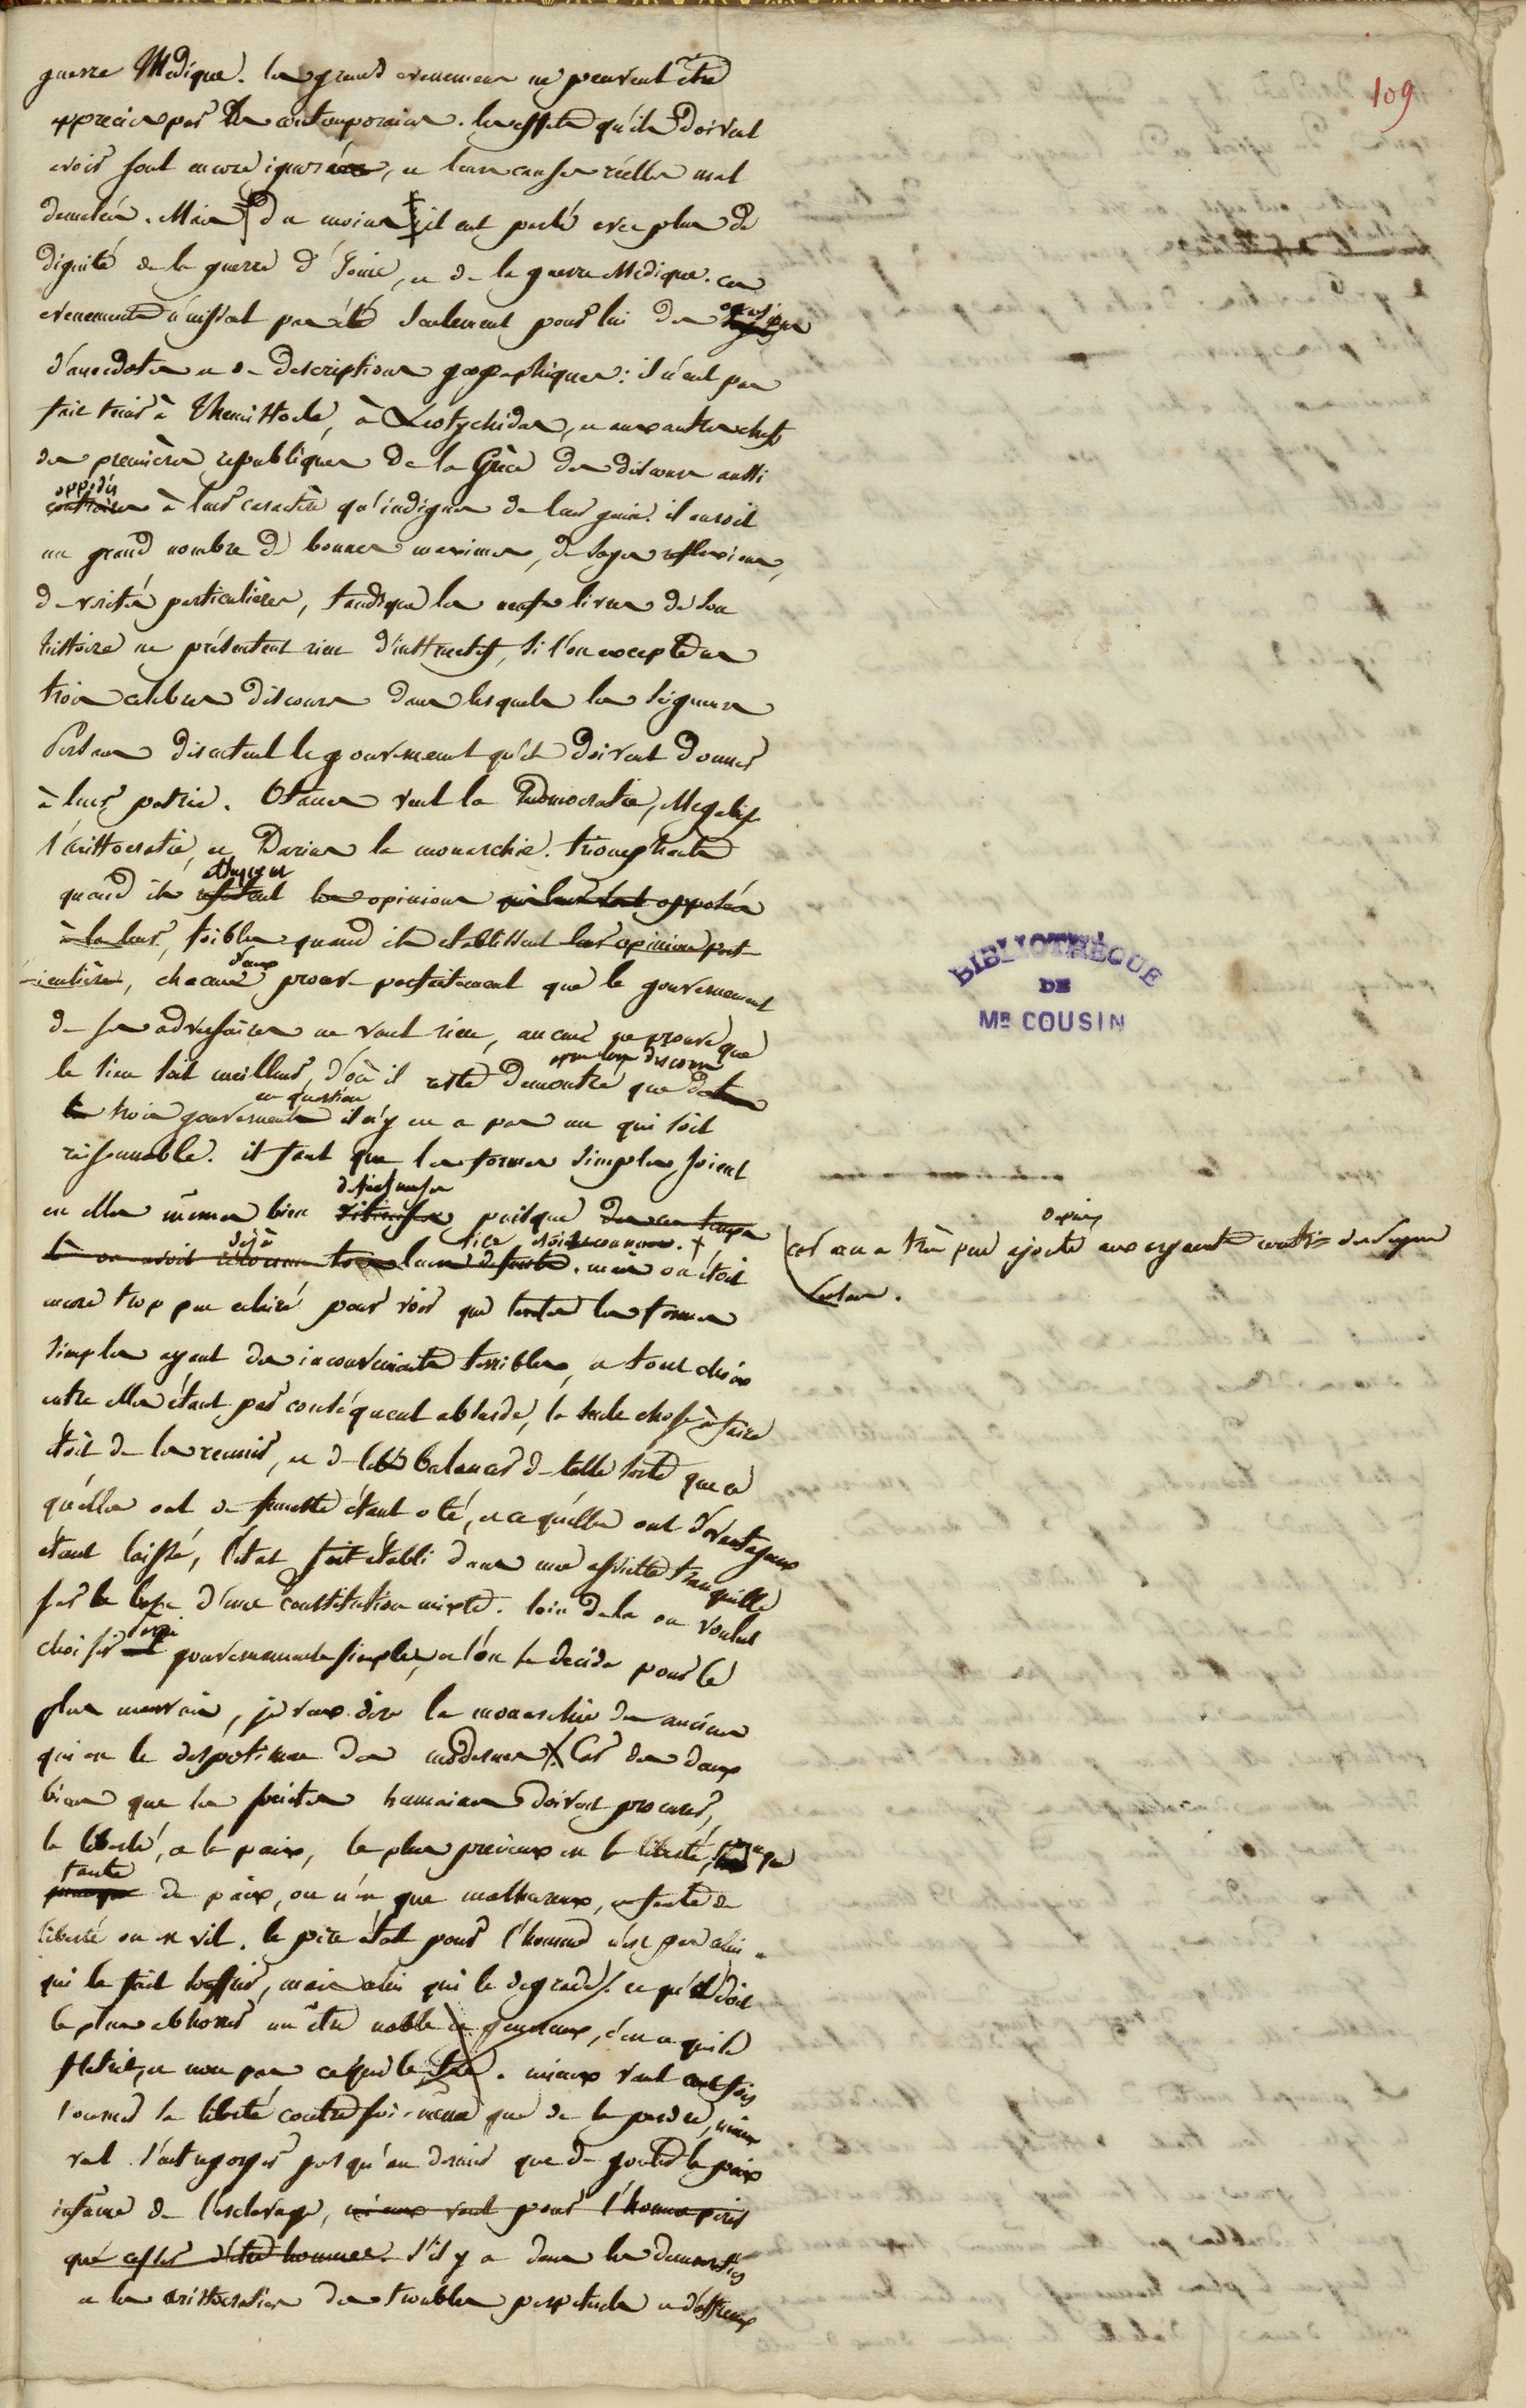 109
guerre Medique. les grands evenemens ne peuvent être
appreciés par les contemporains. les effets qu'ils doivent
avoir sont encore ignorés, et leurs causes réelles mal
demelées. Mais du moins il eut parlé avec plus de
dignité de la guerre d'Ionie, et de la guerre Medique. ces
evenements n'eussent pas été seulement pour lui des occasions
d'anecdotes et de descriptions geographiques: il n'eut pas
fait tenir à Themistocle, à Leotychidas, et aux autres chefs
des premières republiques de la Grèce des discours aussi
opposés
contraires à leur caractère qu'indignes de leur genie. il auroit
un grand nombre de bonnes maximes, de sages reflexions,
de verités particulières, tandisque les neufs livres de son
histoire ne présentent rien d'instructif, si l'on excepte les
trois celebres discours dans lesquels les seigneurs
Persans discutent le gouvernement qu'ils doivent donner
à leur patrie. Otanes veut la democratie, Megabise
l'aristocratie, et Darius la monarchie. triomphants
attaquent
quand ils refutent les opinions qui leur sont opposées
à la leur, foibles quand ils etablissent leur opinion part-
iculière, chacun d'eux prouve parfaitement que le gouvernement
de ses adversaires ne vaut rien, aucun ne prouve que
après leurs discours
le sien soit meilleur, d'où il reste demontré que dans
en question
les trois gouvernements il n'y en a pas un qui soit
raisonnable. il faut que les formes simples soient
defectueuses
en elles mêmes bien vitieuses puisque dans ce temps
là on avoit déjà reconnu tous leurs defauts. mais on étoit
car on a très peu ajouté depuis aux argumens contre des Seigneurs
Persans.
encore trop peu eclairé pour voir que toutes les formes
simples ayant des inconvenients terribles, et tout choix
entre elles étant par conséquent absurde, la seule chose à faire
étoit de les reunir, et de les balancer de telle sorte que ce
qu'elles ont de funeste étant oté, et ce qu'elles ont d'avantageux
étant laissé, l'état soit établi dans une assiette tranquille
sur la base d'une constitution mixte. loin de là on voulut
choisir gouvernements simples, et l'on se decida pour le
plus mauvais, je veux dire la monarchie des anciens
qui est le despotisme des modernes. Car des deux
biens que les societés humaines doivent procurer,
la liberté, et la paix, le plus precieux est la liberté,
faute
de paix, on n'est que malheureux, et faute de
liberté on est vil. le pire état pour l'homme n'est pas celui
qui le fait souffrir, mais celui qui le degrade. ce que doit
le plus abhorrer un être noble et genereux, c'est ce qui le
flétrit, et non pas ce qui le tue. mieux vaut cent fois
tourner sa liberté contre soi-même que de la perdre, mieux
vaut s'entregorger jusqu'au dernier que de gouter la paix
infame de l'esclavage, mieux vaut pour l'homme perir
que cesser d'être homme. s'il y a dans les democraties
et les aristocraties des troubles perpetuels et d'affreux
BIBLIOTHÈQUE
DE
MR COUSIN